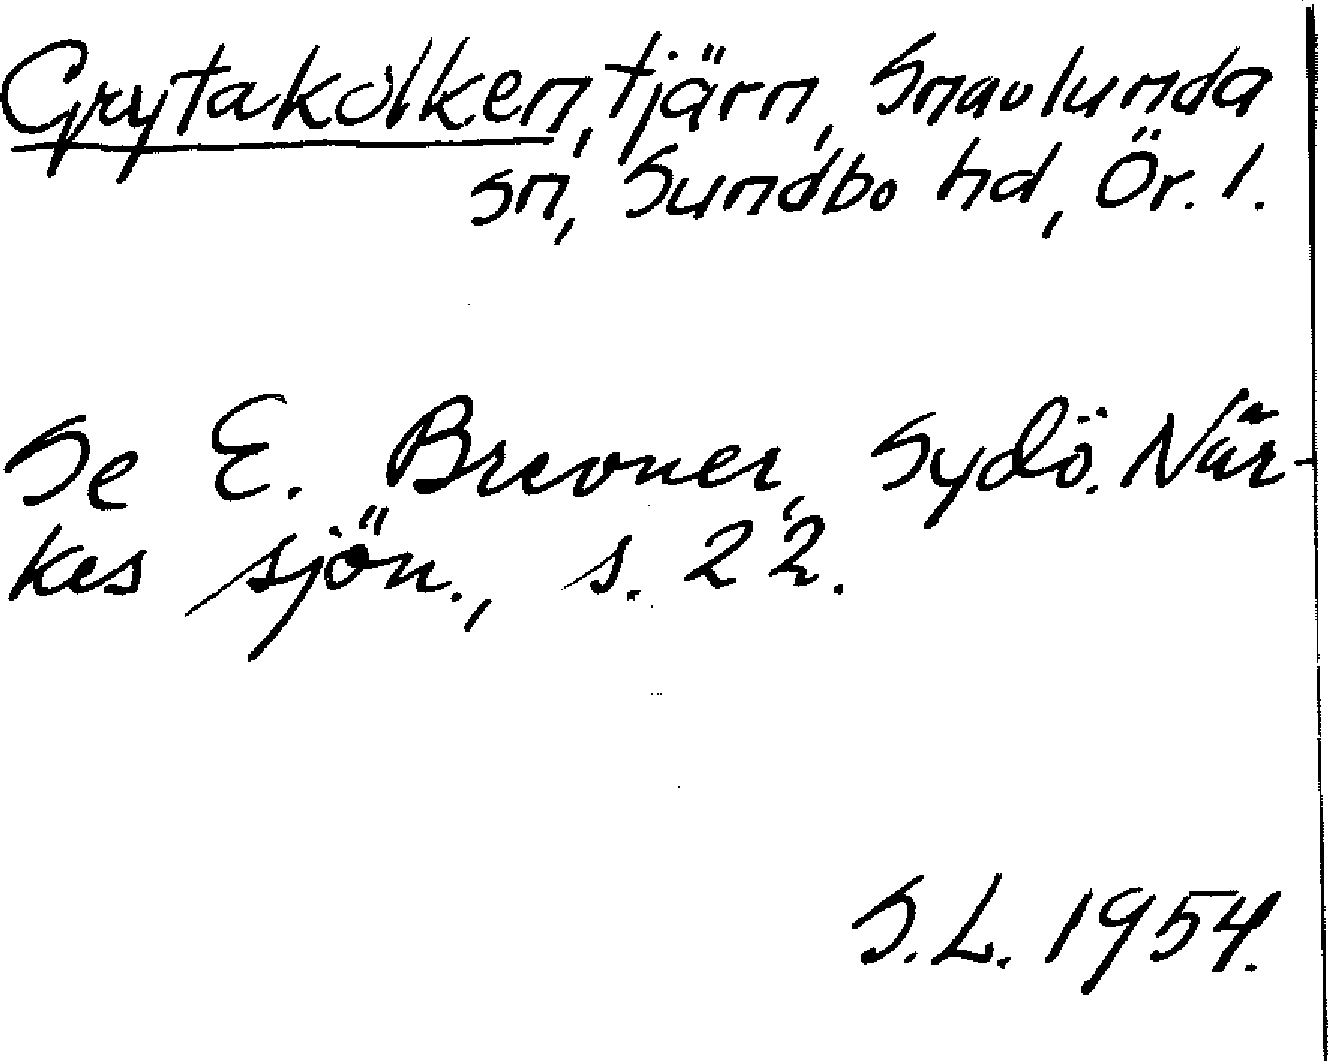 Grytakölken, tjärn, Snavlunda
sn, Sundbo hd, Ör. l.
Se E. Brevner, Sydö. När-
kes sjön., s. 22.
S.L. 1954.